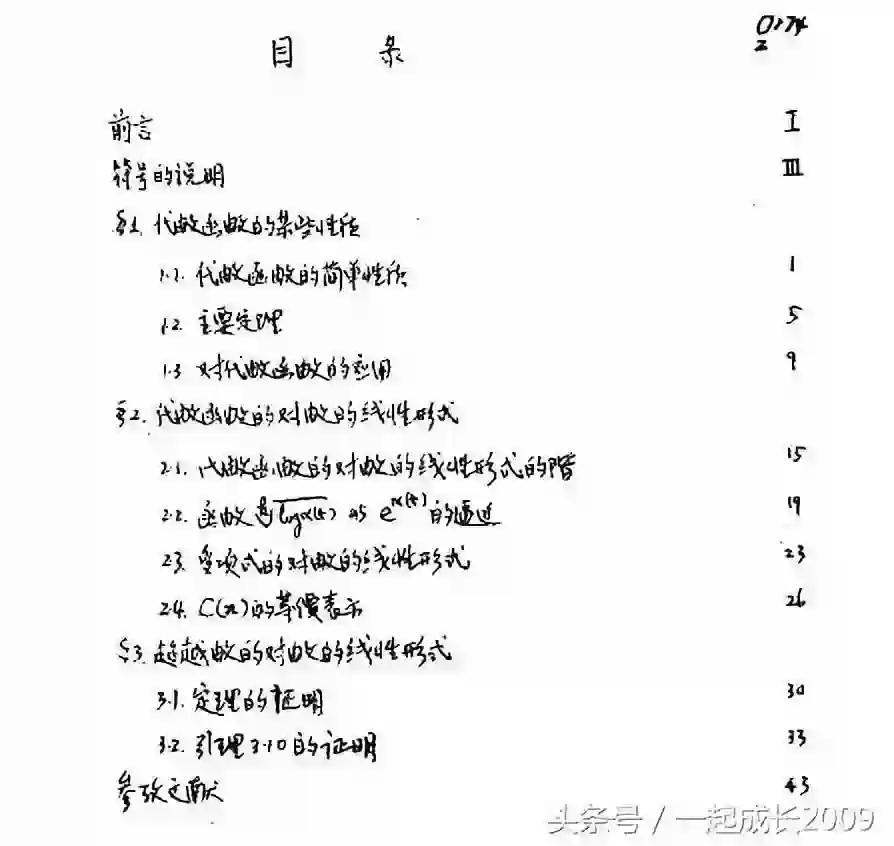 目 录
前言 I
符号的说明 III
§1. 代数函数的某些性质
1.1. 代数函数的简单性质 1
1.2. 主要定理 5
1.3 对代数函数的应用 9
§2. 代数函数的对数的线性形式
2.1. 代数函数的对数的线性形式的阶 15
2.2. 函数 log α(x) 与 e^α(x) 的逼近 19
2.3. 多项式的对数的线性形式 23
2.4. C(n)的等价表示 26
§3. 超越数的对数的线性形式
3.1. 定理的证明 30
3.2. 引理3.10的证明 33
参考文献 43
头条号 / 一起成长2009